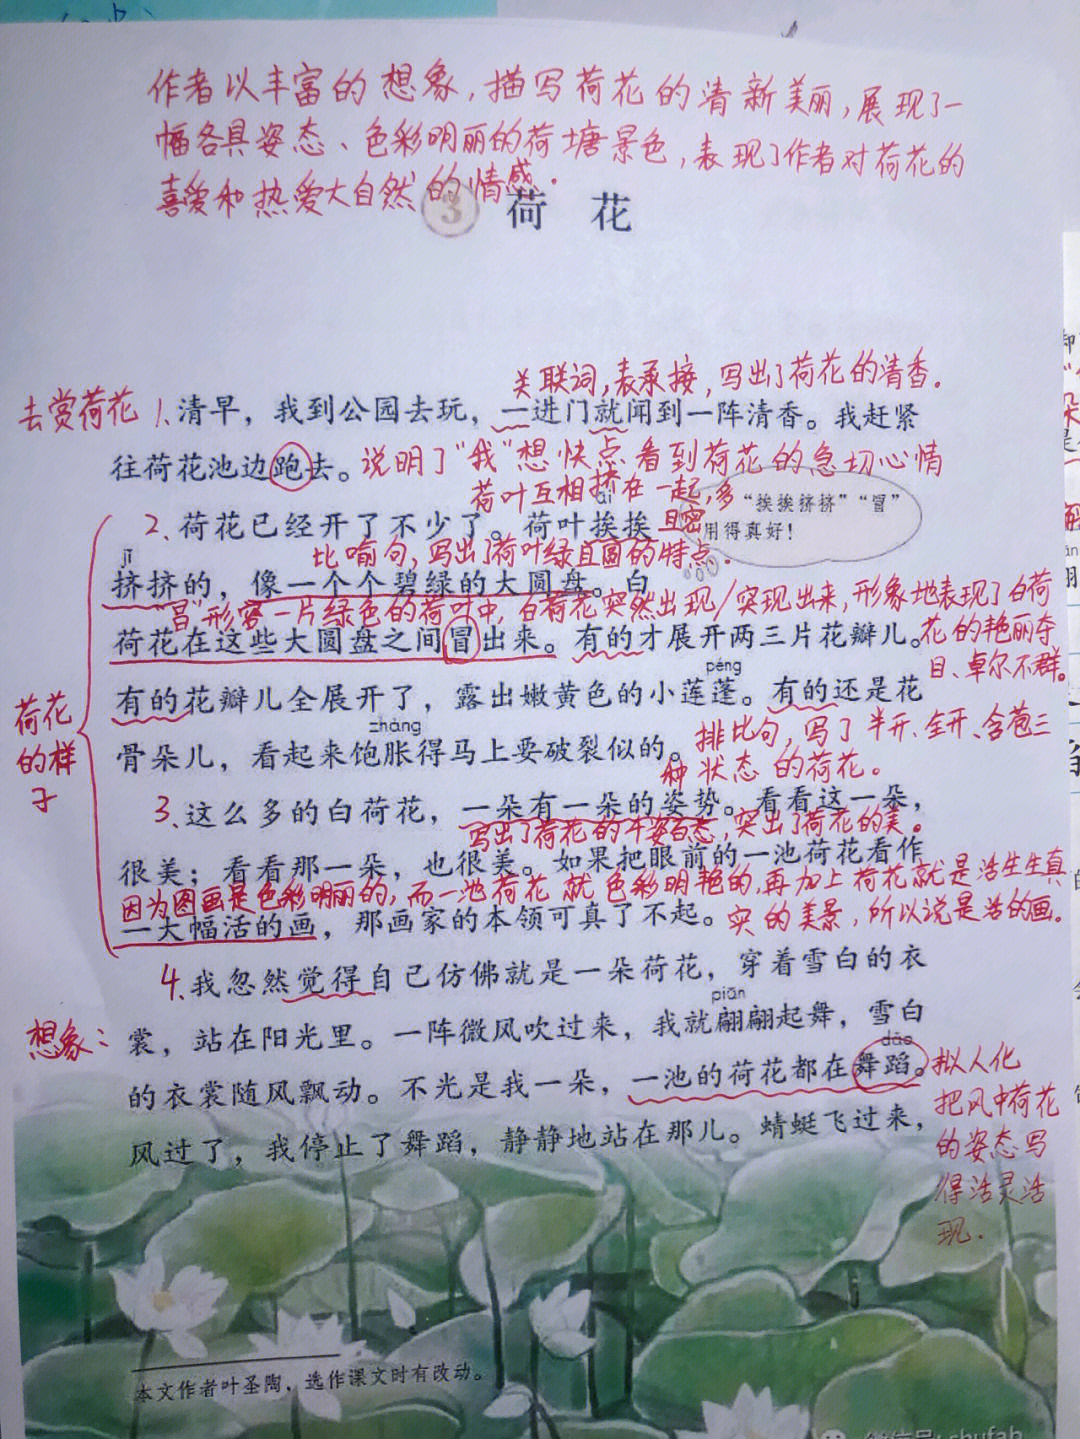 作者以丰富的想象，描写荷花的清新美丽，展现了一
幅各具姿态、色彩明丽的荷塘景色，表现了作者对荷花的
喜爱和热爱大自然的情感.
3 荷花
关联词，表承接，写出了荷花的清香.
去赏荷花
1、清早，我到公园去玩，一进门就闻到一阵清香。我赶紧
往荷花池边跑去。说明了"我"想快点看到荷花的急切心情
荷叶互相挤在一起，多
且密
āi
“挨挨挤挤”“冒”
用得真好！
2、荷花已经开了不少了。荷叶挨挨
比喻句，写出了荷叶绿且圆的特点.
jǐ
挤挤的，像一个个碧绿的大圆盘。白
"冒"形容一片绿色的荷叶中，白荷花突然出现/实现出来，形象地表现了白荷
花的艳丽夺
目、卓尔不群。
荷花在这些大圆盘之间冒出来。有的才展开两三片花瓣儿。
péng
有的花瓣儿全展开了，露出嫩黄色的小莲蓬。有的还是花
zhàng
骨朵儿，看起来饱胀得马上要破裂似的。
排比句，写了半开、全开、含苞三
种状态的荷花。
荷花
的样
子
3、这么多的白荷花，一朵有一朵的姿势。看看这一朵，
写出了荷花的千姿百态，突出了荷花的美。
很美；看看那一朵，也很美。如果把眼前的一池荷花看作
因为图画是色彩明丽的，而一池荷花就色彩明艳的，再加上荷花就是活生生真
实的美景，所以说是活的画。
一大幅活的画，那画家的本领可真了不起。
4、我忽然觉得自己仿佛就是一朵荷花，穿着雪白的衣
piān
想象：
裳，站在阳光里。一阵微风吹过来，我就翩翩起舞，雪白
dǎo
的衣裳随风飘动。不光是我一朵，一池的荷花都在舞蹈。
拟人化
把风中荷花
的姿态写
得活灵活
现.
风过了，我停止了舞蹈，静静地站在那儿。蜻蜓飞过来，
本文作者叶圣陶，选作课文时有改动。
微信号: shufah